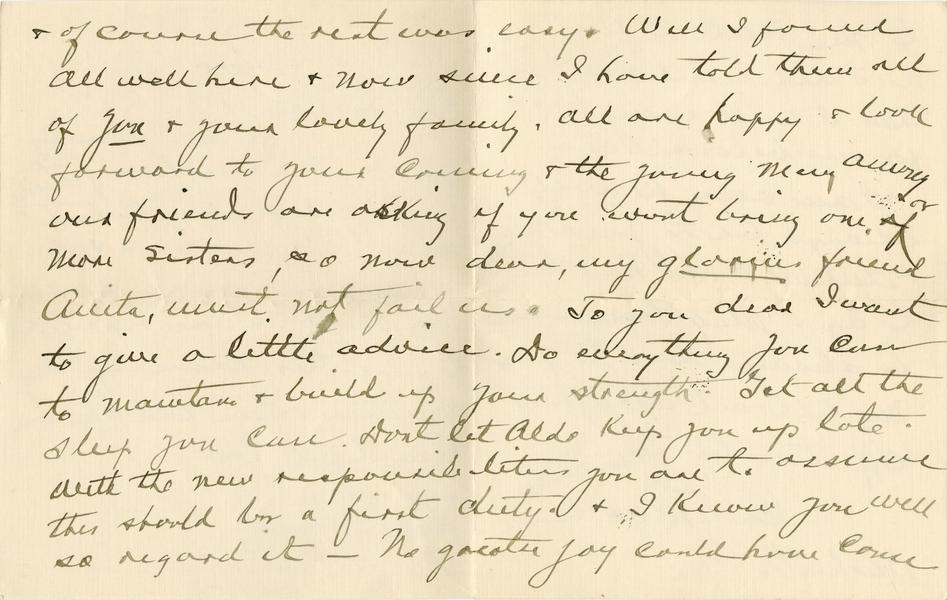 & of course the rest was easy. Well I found
all well here & now since I have told them all
of you & your lovely family. All are happy & look
forward to your coming & the young men among
our friends are asking if you wont bring one or
more sisters, so now dear, my glorious friend
Anita, must not fail us. To you dear I want
to give a little advice. Do everything you can
to maintain & build up your strength. Get all the
sleep you can. Dont let Aldo keep you up late.
With the new responsibilities you are to assume
this should be a first duty. & I know you well
so regard it — No greater joy could have come